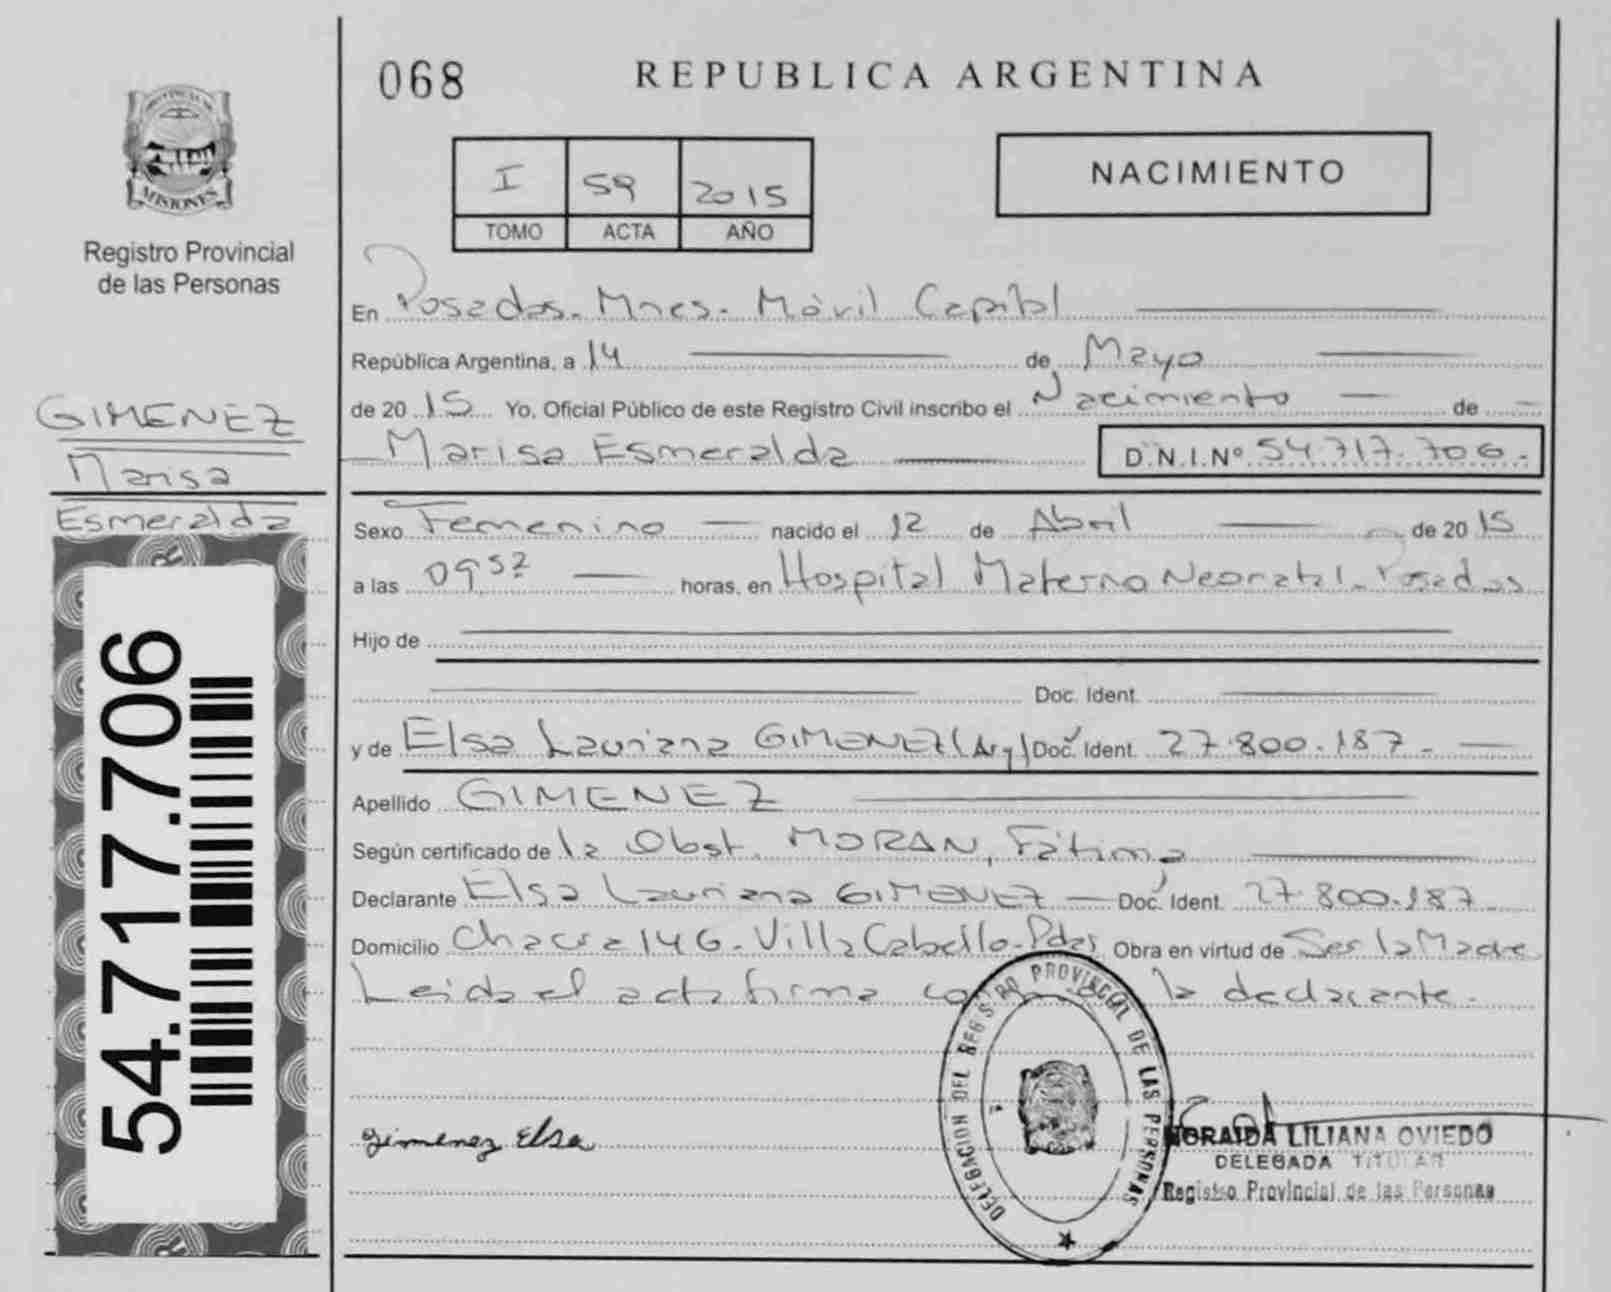 068
REPUBLICA ARGENTINA
PROVINCIA DE
MISIONES
Registro Provincial
de las Personas
I 59 2015
TOMO ACTA AÑO
NACIMIENTO
En Posadas. Mnes. Móvil Capital
República Argentina, a 14 de Mayo
de 2015 Yo, Oficial Público de este Registro Civil inscribo el Nacimiento de
Marisa Esmeralda D.N.I.Nº 54.717.706.
GIMENEZ
Marisa
Esmeralda
54.717.706
Sexo Femenino nacido el 12 de Abril de 2015
a las 0952 horas, en Hospital Materno Neonatal. Posadas
Hijo de
Doc. Ident.
y de Elsa Lauriana GIMENEZ (Arg) Doc. Ident. 27.800.187.
Apellido GIMENEZ
Según certificado de la Obst. MORAN, Fátima
Declarante Elsa Lauriana GIMENEZ Doc. Ident. 27.800.187
Domicilio Chacra 146 - Villa Cabello - Pdas Obra en virtud de Ser la Madre
Leida el acta firma la declarante.
Gimenez Elsa
DELEGACION DEL REGISTRO PROVINCIAL DE LAS PERSONAS
NORAIDA LILIANA OVIEDO
DELEGADA TITULAR
Registro Provincial de las Personas